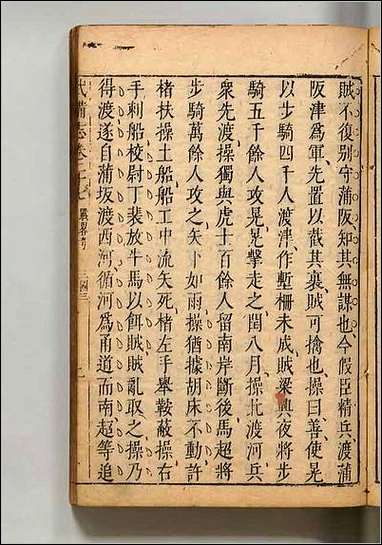 賊不復別守蒲阪知其無謀也今假臣精兵渡蒲
阪津為軍先置以截其裏賊可擒也操曰善使晃
以步騎四千人渡津作塹柵未成賊梁興夜將步
騎五千餘人攻晃晃擊走之閏八月操北渡河兵
衆先渡操獨與虎士百餘人留南岸斷後馬超將
步騎萬餘人攻之矢下如雨操猶據胡床不動許
褚扶操上船船工中流矢死褚左手舉鞍蔽操右
手刺船校尉丁裴放牛馬以餌賊賊亂取之操乃
得渡遂自蒲坂渡西河循河為甬道而南超等追
武備志卷二十七 戰畧考 三國三